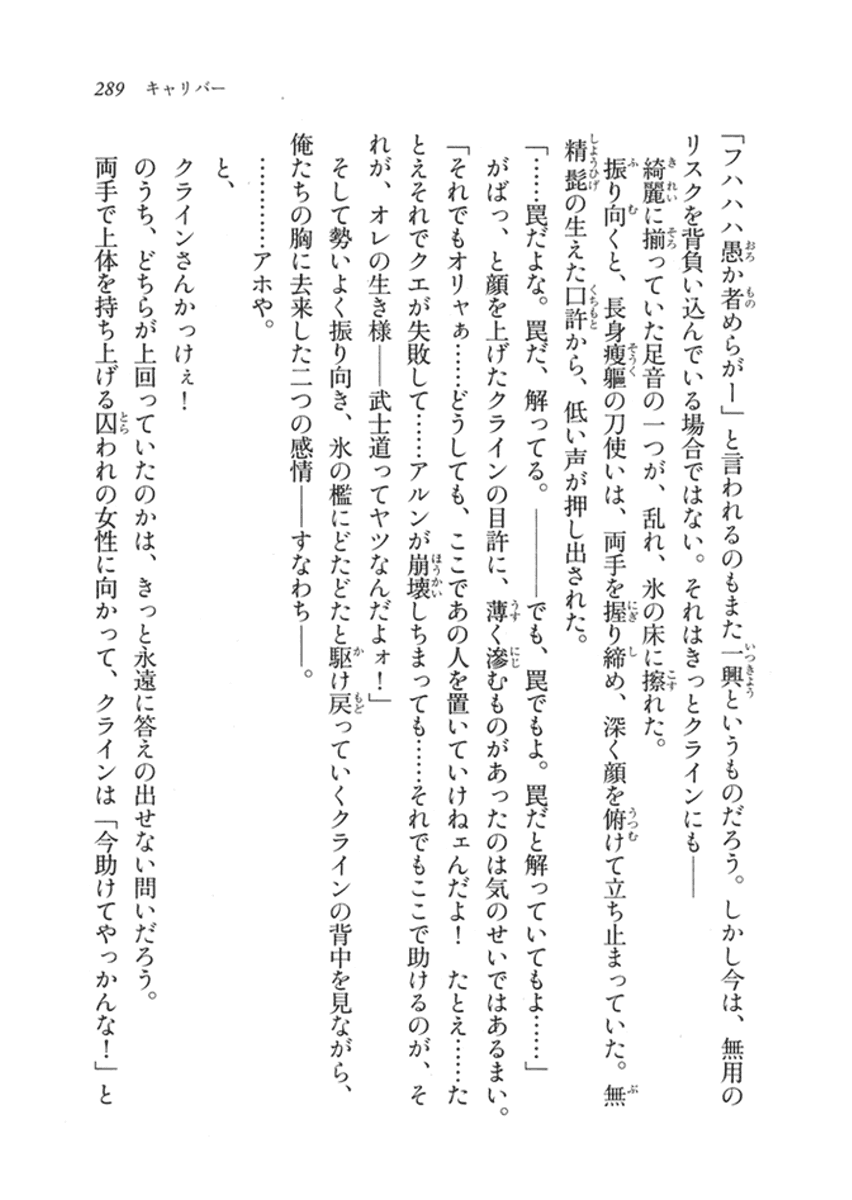 289 キャリバー
「フハハハ愚か者めらがー」と言われるのもまた一興というものだろう。しかし今は、無用の
リスクを背負い込んでいる場合ではない。それはきっとクラインにも――
綺麗に揃っていた足音の一つが、乱れ、氷の床に擦れた。
振り向くと、長身痩軀の刀使いは、両手を握り締め、深く顔を俯けて立ち止まっていた。無
精髭の生えた口許から、低い声が押し出された。
「……罠だよな。罠だ、解ってる。――――でも、罠でもよ。罠だと解っていてもよ……」
がばっ、と顔を上げたクラインの目許に、薄く滲むものがあったのは気のせいではあるまい。
「それでもオリャぁ……どうしても、ここであの人を置いていけねェんだよ！　たとえ……た
とえそれでクエが失敗して……アルンが崩壊しちまっても……それでもここで助けるのが、そ
れが、オレの生き様――武士道ってヤツなんだよォ！」
そして勢いよく振り向き、氷の檻にどたどたと駆け戻っていくクラインの背中を見ながら、
俺たちの胸に去来した二つの感情――すなわち――。
…………アホや。
と、
クラインさんかっけぇ！
のうち、どちらが上回っていたのかは、きっと永遠に答えの出せない問いだろう。
両手で上体を持ち上げる囚われの女性に向かって、クラインは「今助けてやっかんな！」と